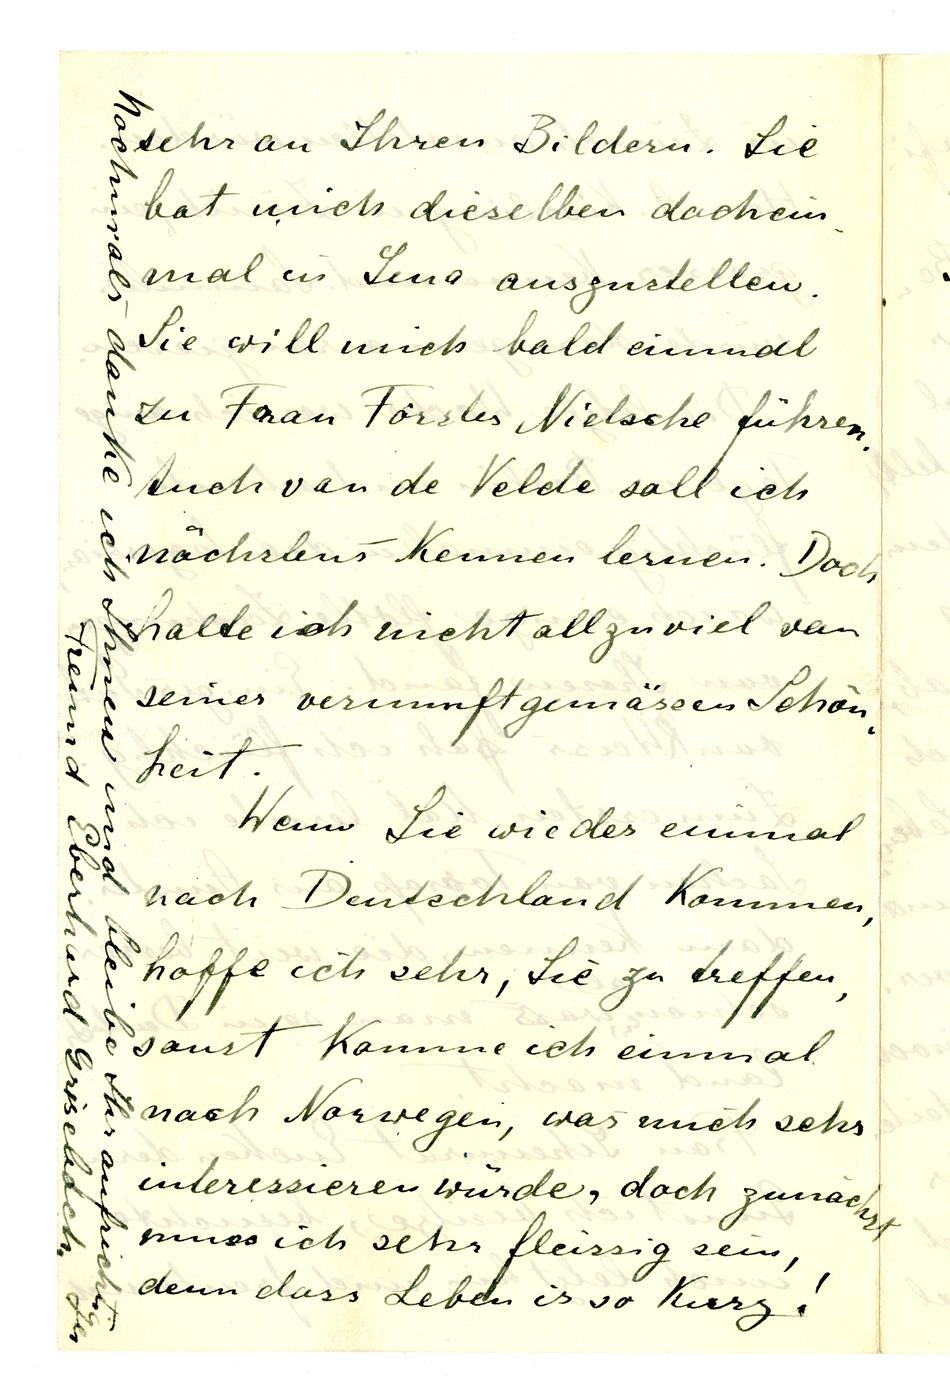 sehr an Ihren Bildern. Sie
bat mich dieselben doch ein-
mal in Jena auszustellen.
Sie will mich bald einmal
zu Frau Förster Nietsche führen.
Auch van de Velde soll ich
nächstens kennen lernen. Doch
halte ich nicht allzuviel von
seiner vernunftgemässen Schön-
heit.
Wenn Sie wieder einmal
nach Deutschland kommen,
hoffe ich sehr, Sie zu treffen,
sonst komme ich einmal
nach Norwegen, was mich sehr
interessieren würde, doch zunächst
muss ich sehr fleissig sein,
denn dass Leben is so kurz!
Nochmals danke ich Ihnen und bleibe Ihr aufrichtigster
Freund Eberhard Grisebach.